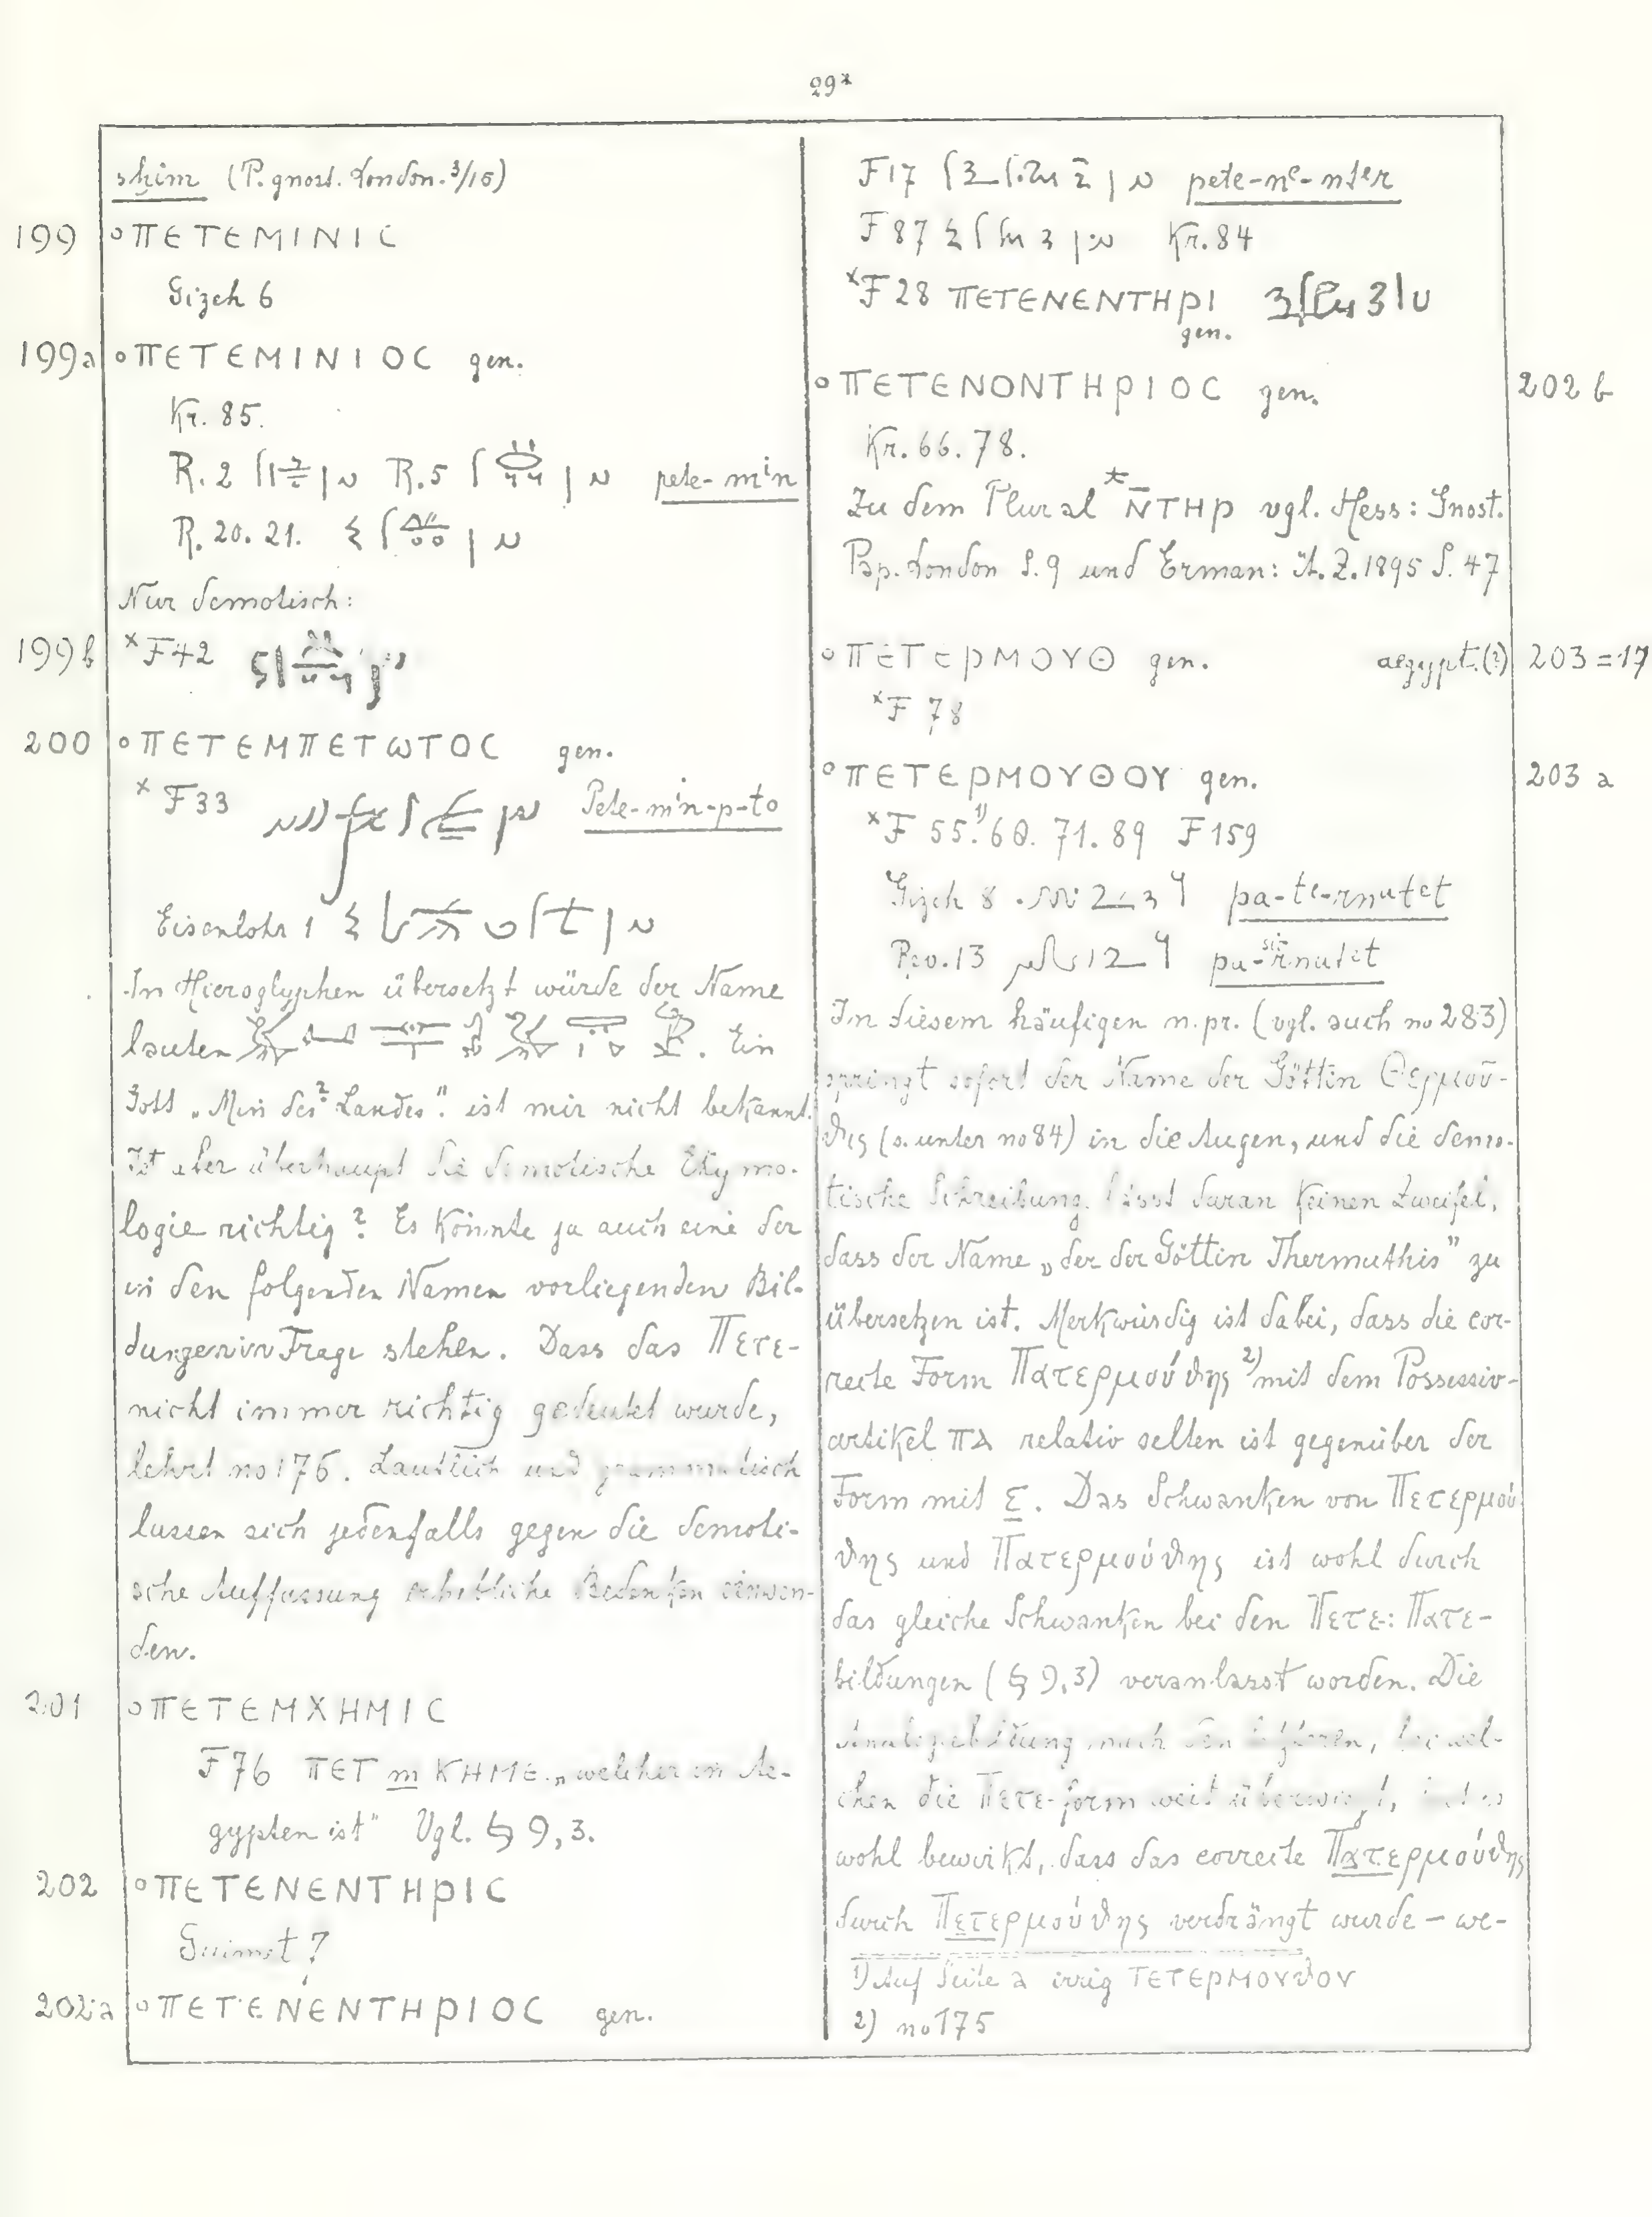 29*
shim (P. gnost. London. 3/15)
199 °ΠΕΤΕΜΙΝΙC
Gizeh 6
199a °ΠΕΤΕΜΙΝΙΟC gen.
Kr. 85.
R. 2 R. 5 pete-min
R. 20. 21.
Nur demotisch:
199b *F42
200 °ΠΕΤΕΜΠΕΤωΤΟC gen.
*F33 Pete-min-p-to
Eisenlohr 1
In Hieroglyphen übersetzt würde der Name
lauten . Ein
Gott „Min des? Landes". ist mir nicht bekannt.
Ist aber überhaupt die demotische Etymo-
logie richtig? Es könnte ja auch eine der
in den folgenden Namen vorliegenden Bil-
dungen in Frage stehen. Dass das Πετε-
nicht immer richtig gedeutet wurde,
lehrt no 176. Lautlich und grammatisch
lassen sich jedenfalls gegen die demoti-
sche Auffassung erhebliche Bedenken einwen-
den.
201 °ΠΕΤΕΜΧΗΜΙC
F76 ΠΕΤ m ΚΗΜΕ „welcher in Ae-
gypten ist" Vgl. § 9, 3.
202 °ΠΕΤΕΝΕΝΤΗΡΙC
Guimet 7
202a °ΠΕΤΕΝΕΝΤΗΡΙΟC gen.
F17 pete-ne-nter
F87 Kr. 84
*F28 ΠΕΤΕΝΕΝΤΗΡΙ
gen.
°ΠΕΤΕΝΟΝΤΗΡΙΟC gen. 202b
Kr. 66. 78.
Zu dem Plural *N̄ΤΗΡ vgl. Hess: Gnost.
Pap. London S. 9 und Erman: Ä. Z. 1895 S. 47
°ΠΕΤΕΡΜΟΥΘ gen. aegypt. (?) 203 = 17
*F 78
°ΠΕΤΕΡΜΟΥΘΟΥ gen. 203a
*F 55.¹⁾ 60. 71. 89 F 159
Gizeh 8 pa-te-rnutet
Rev. 13 pa-rnutet
sic
In diesem häufigen n. pr. (vgl. auch no 283)
springt sofort der Name der Göttin Θερμοῦ-
θις (s. unter no 84) in die Augen, und die demo-
tische Schreibung lässt daran keinen Zweifel,
dass der Name „der der Göttin Thermuthis" zu
übersetzen ist. Merkwürdig ist dabei, dass die cor-
recte Form Πατερμούθης ²⁾ mit dem Possessiv-
artikel ΠΑ relativ selten ist gegenüber der
Form mit Ε. Das Schwanken von Πετερμού
θης und Πατερμούθης ist wohl durch
das gleiche Schwanken bei den Πετε: Πατε-
bildungen (§ 9, 3) veranlasst worden. Die
Analogiebildung nach den letzteren, bei wel-
chen die Πετε-form weit überwiegt, hat es
wohl bewirkt, dass das correcte Πατερμούθης
durch Πετερμούθης verdrängt wurde – we-
1) Auf Seite a irrig ΤΕΤΕΡΜΟΥθΟΥ
2) no 175